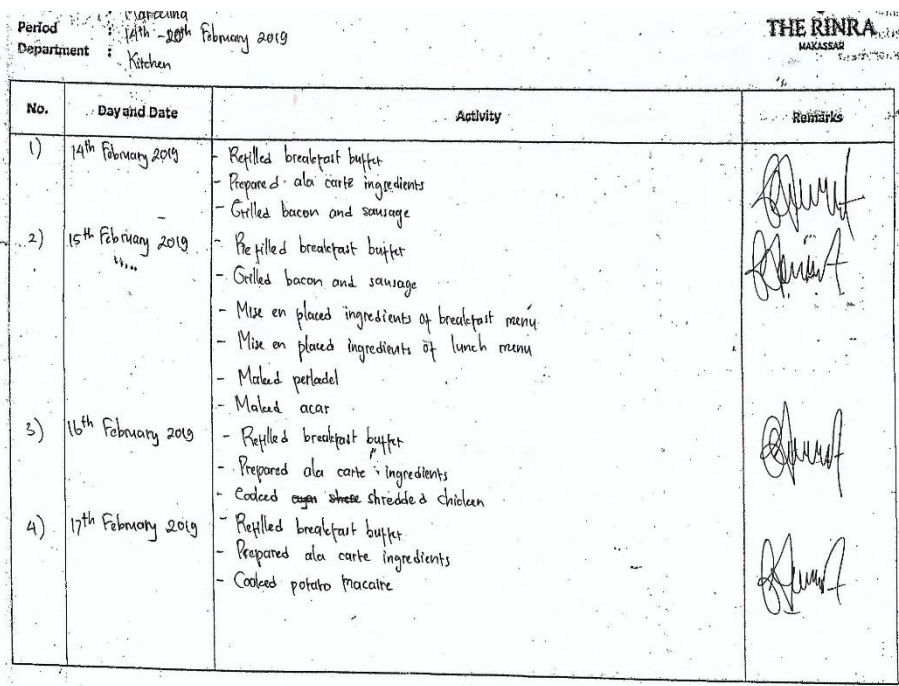 : Marcelina
Period : 14th - 20th February 2019
Department : Kitchen
THE RINRA
MAKASSAR
No. Day and Date Activity Remarks
1) 14th February 2019 - Refilled breakfast buffer
- Prepared ala carte ingredients
- Grilled bacon and sausage
2) 15th February 2019 - Refilled breakfast buffer
- Grilled bacon and sausage
- Mise en placed ingredients of breakfast menu
- Mise en placed ingredients of lunch menu
- Maked perkadel
- Maked acar
3) 16th February 2019 - Refilled breakfast buffer
- Prepared ala carte ingredients
- Cooked shredded chicken
4) 17th February 2019 - Refilled breakfast buffer
- Prepared ala carte ingredients
- Cooked potato macaire